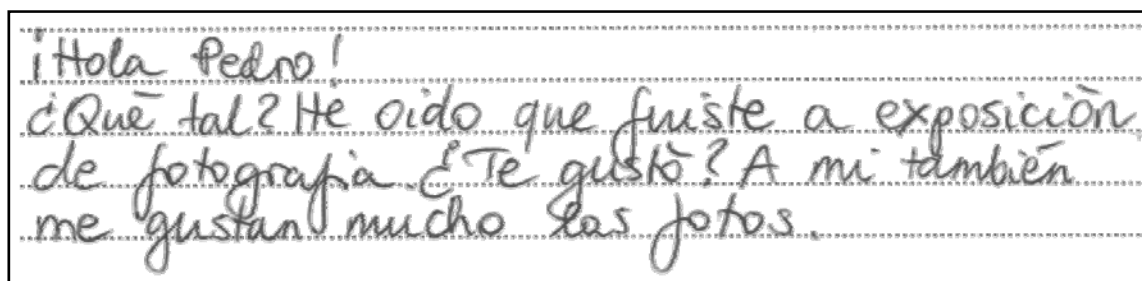 ¡Hola Pedro!
¿Qué tal? He oido que fuiste a exposición
de fotografia ¿Te gustó? A mi también
me gustan mucho las fotos.